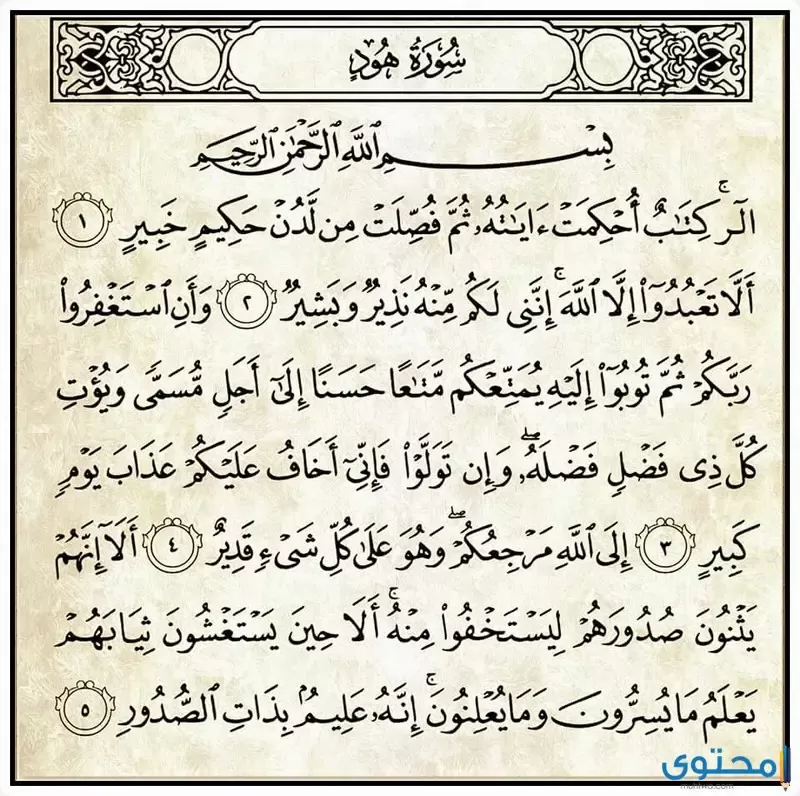 سُورَةُ هُودٍ
بِسْمِ ٱللَّهِ ٱلرَّحْمَٰنِ ٱلرَّحِيمِ
الٓرۚ كِتَٰبٌ أُحْكِمَتْ ءَايَٰتُهُۥ ثُمَّ فُصِّلَتْ مِن لَّدُنْ حَكِيمٍ خَبِيرٍ ١
أَلَّا تَعْبُدُوٓا۟ إِلَّا ٱللَّهَۚ إِنَّنِى لَكُم مِّنْهُ نَذِيرٌ وَبَشِيرٌ ٢ وَأَنِ ٱسْتَغْفِرُوا۟
رَبَّكُمْ ثُمَّ تُوبُوٓا۟ إِلَيْهِ يُمَتِّعْكُم مَّتَٰعًا حَسَنًا إِلَىٰٓ أَجَلٍ مُّسَمًّى وَيُؤْتِ
كُلَّ ذِى فَضْلٍ فَضْلَهُۥۖ وَإِن تَوَلَّوْا۟ فَإِنِّىٓ أَخَافُ عَلَيْكُمْ عَذَابَ يَوْمٍ
كَبِيرٍ ٣ إِلَى ٱللَّهِ مَرْجِعُكُمْۖ وَهُوَ عَلَىٰ كُلِّ شَىْءٍ قَدِيرٌ ٤ أَلَآ إِنَّهُمْ
يَثْنُونَ صُدُورَهُمْ لِيَسْتَخْفُوا۟ مِنْهُۚ أَلَا حِينَ يَسْتَغْشُونَ ثِيَابَهُمْ
يَعْلَمُ مَا يُسِرُّونَ وَمَا يُعْلِنُونَۚ إِنَّهُۥ عَلِيمٌۢ بِذَاتِ ٱلصُّدُورِ ٥
محتوى